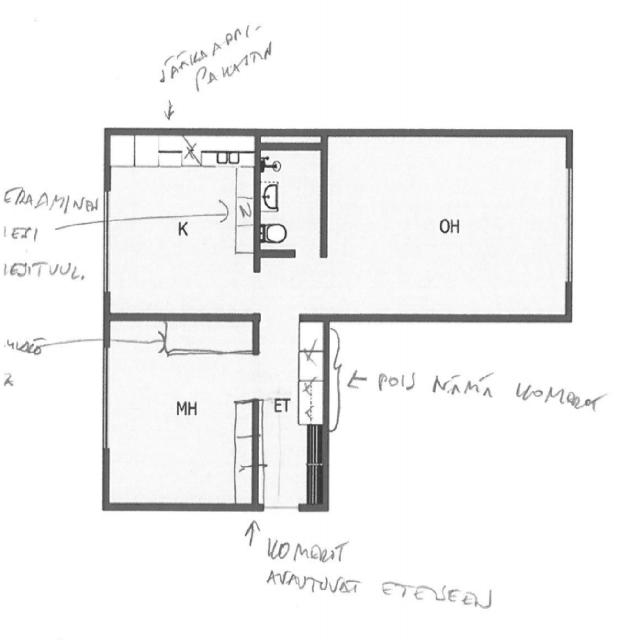 JÄÄKAAPPI-
PAKASTIN
ERAAMINEN
LIESI
LIESITUUL.
K
N
OH
MH
ET
← POIS NÄMÄ KOMEROT
KOMEROT
AVAUTUVAT ETEISEEN